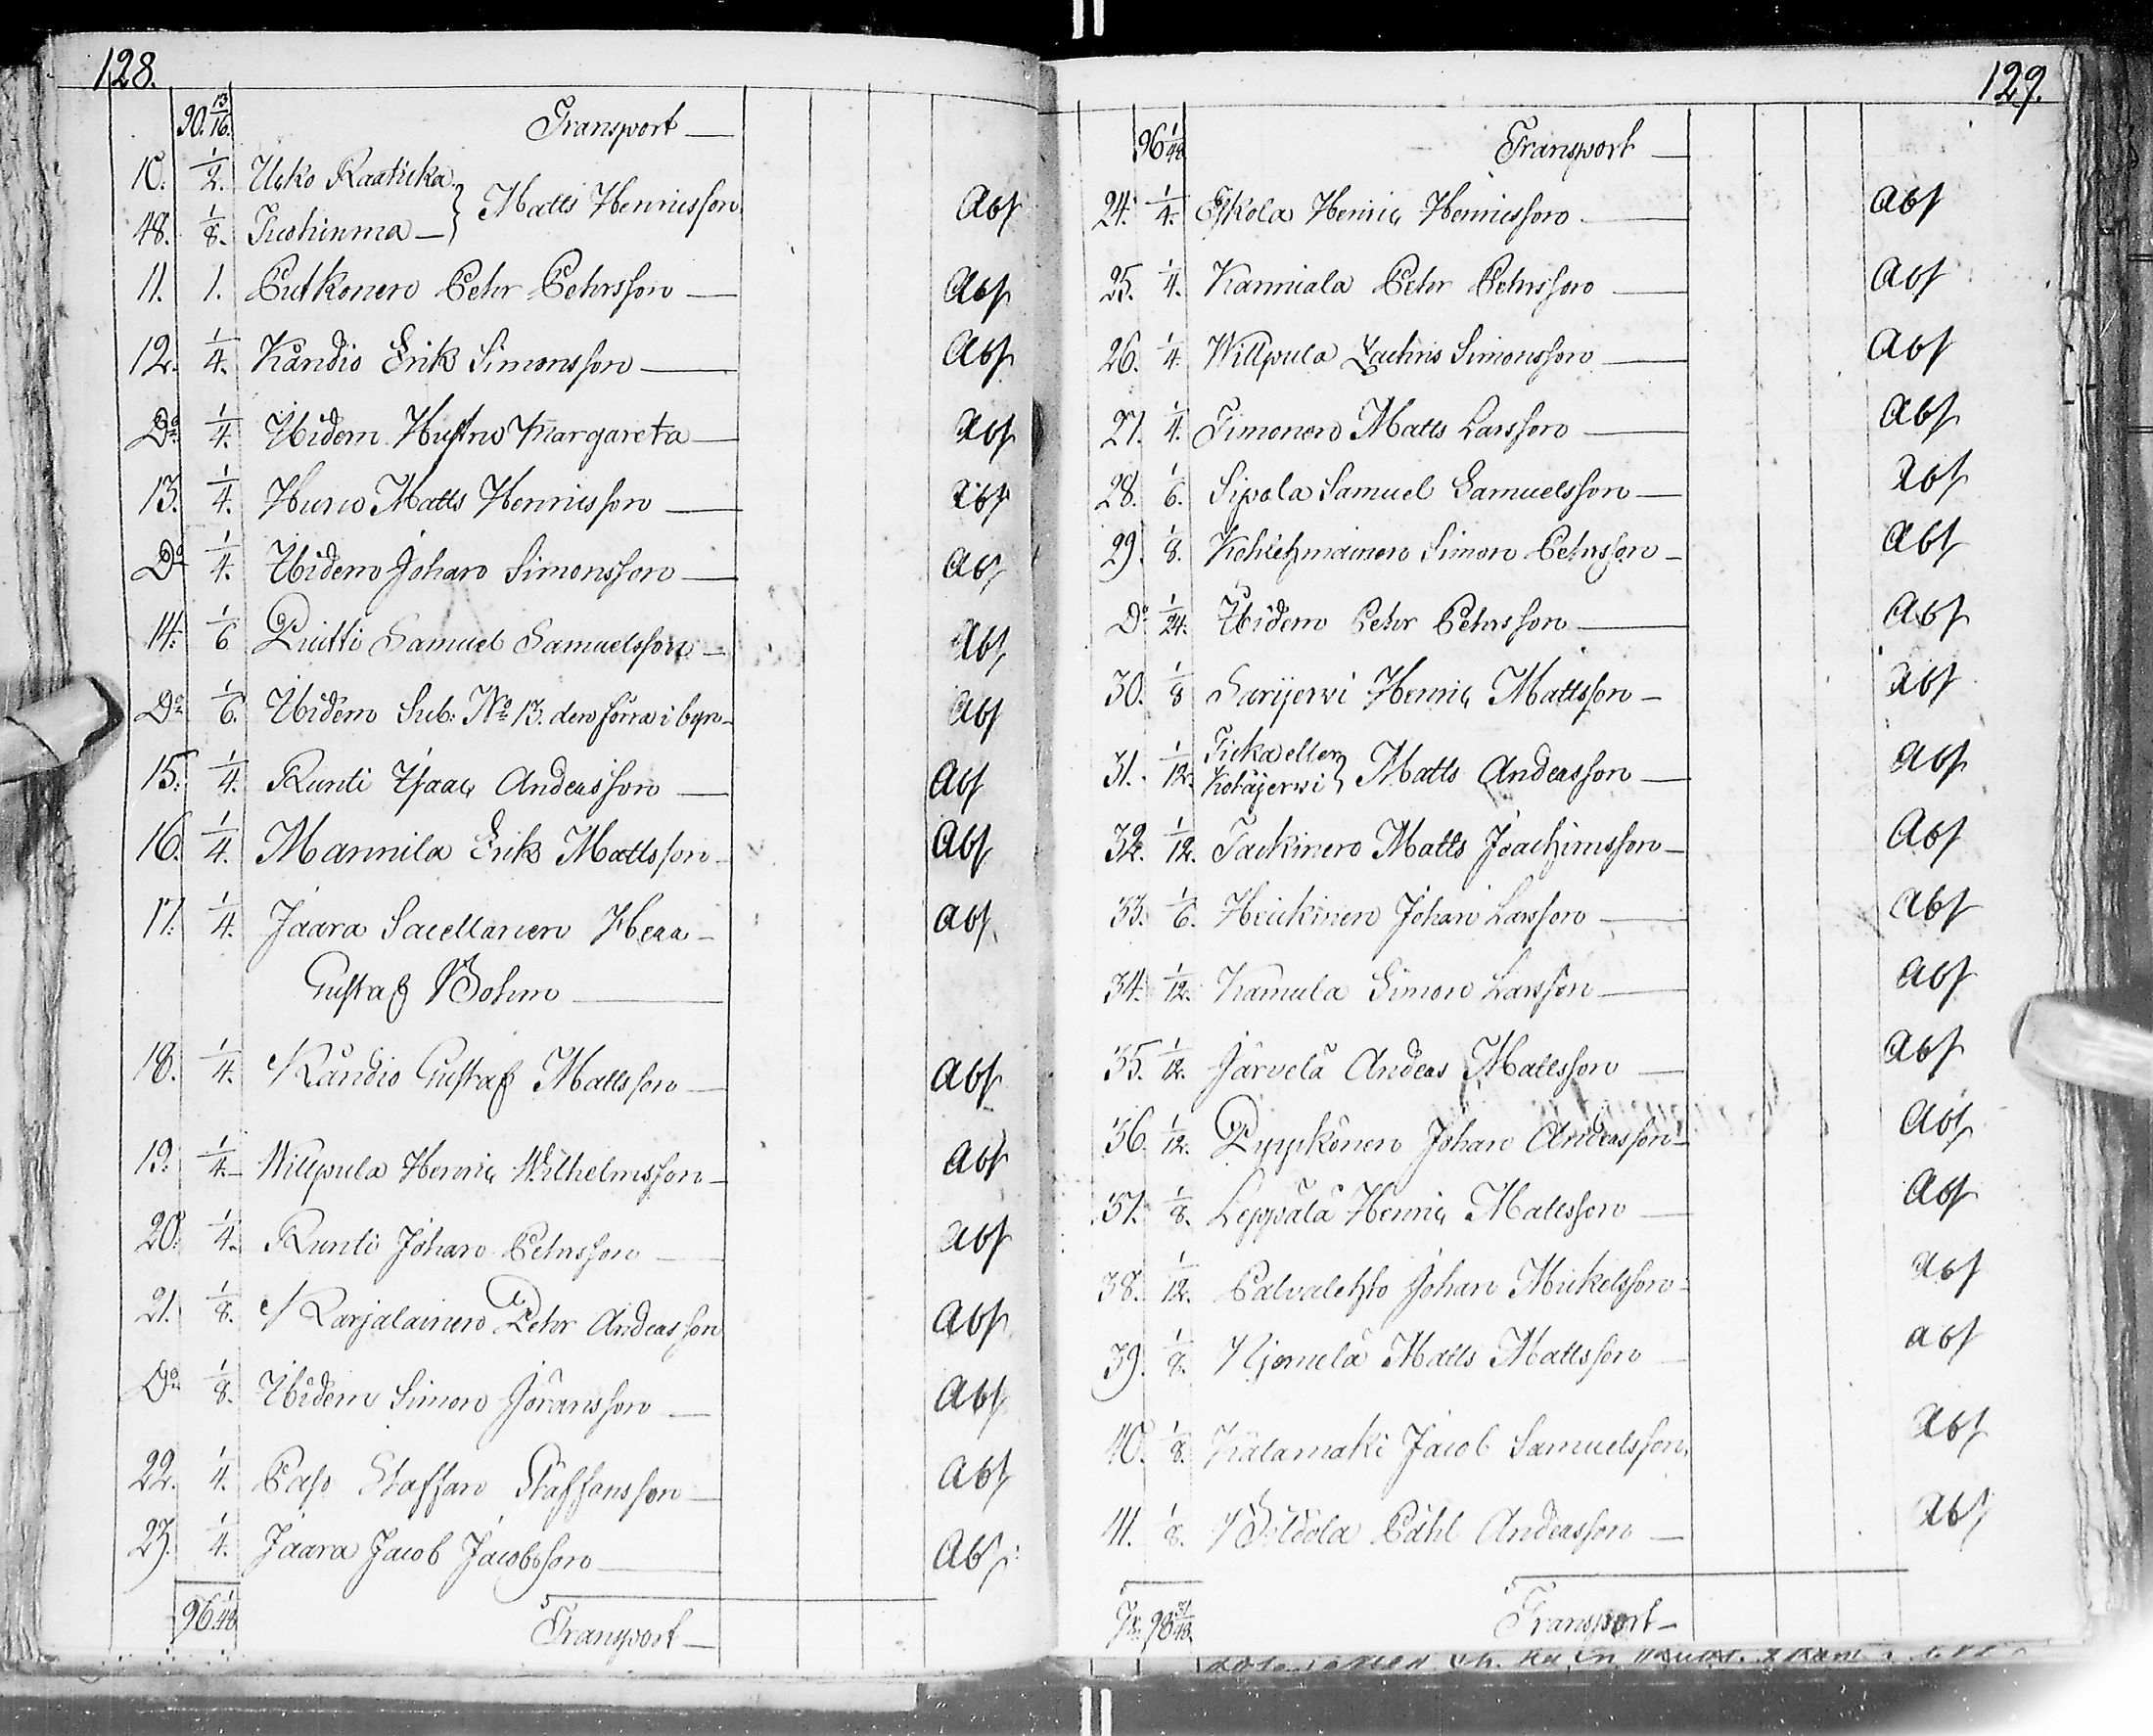 128.
90. 13/16. Transport —
10. 1/2. Ucko Raaticka } Matts Henricsson Abs
48. 1/8. Tuohinma —
11. 1. Putkonen Pehr Pehrsson — Abs
12. 1/4. Kandio Erik Simonsson — Abs
Do 1/4. Ibidem Hustru Margareta — Abs
13. 1/4. Huro Matts Henricsson — Abs
Do 1/4. Ibidem Johan Simonsson — Abs
14. 1/6 Piutti Samuel Samuelsson — Abs
Do 1/6. Ibidem Sub. No 13. den förra i byn — Abs
15. 1/4. Runti Isaac Andersson — Abs
16. 1/4. Mannila Erik Mattsson — Abs
17. 1/4. Jaara Sacellanen Herr —  Abs
Gustaf Bohm —
18. 1/4. Kandio Gustaf Mattsson — Abs
19. 1/4. Willpula Henric Wilhelmsson — Abs
20. 1/4. Runti Johan Pehrsson — Abs
21. 1/8. Karjalainen Pehr Andersson Abs
Do 1/8. Ibidem Simon Göransson — Abs
22. 1/4. Paso Staffan Staffansson — Abs
23. 1/4. Jaara Jacob Jacobsson — Abs
96. 1/48 Transport —
129.
96 1/48 Transport —
24. 1/4. Eskola Henric Henricsson — Abs
25. 1/4. Kanniala Pehr Pehrsson — Abs
26. 1/4. Willpula Zachris Simonsson — Abs
27. 1/4. Timonen Matts Larsson — Abs
28. 1/6. Sipola Samuel Samuelsson — Abs
29. 1/8. Kohlehmainen Simon Pehrsson — Abs
Do 1/24. Ibidem Pehr Pehrsson — Abs
30. 1/8 Sarijerwi Henric Mattsson — Abs
31. 1/12. Ticka eller Kotajerwi } Matts Andersson — Abs
32. 1/12. Tackinen Matts Joachimsson — Abs
33. 1/6. Heickinen Johan Larsson — Abs
34. 1/12. Kamula Simon Larsson — Abs
35. 1/12. Järvelä Anders Mattsson — Abs
36. 1/12. Pyykönen Johan Andersson — Abs
37. 1/8. Leppälä Henric Mattsson — Abs
38. 1/12. Palvalehto Johan Mickelsson — Abs
39. 1/8. Niemelä Matts Mattsson — Abs
40. 1/8. Kälamäki Jacob Samuelsson Abs
41. 1/8. Påhl Andersson — Abs
98 31/48. Transport —